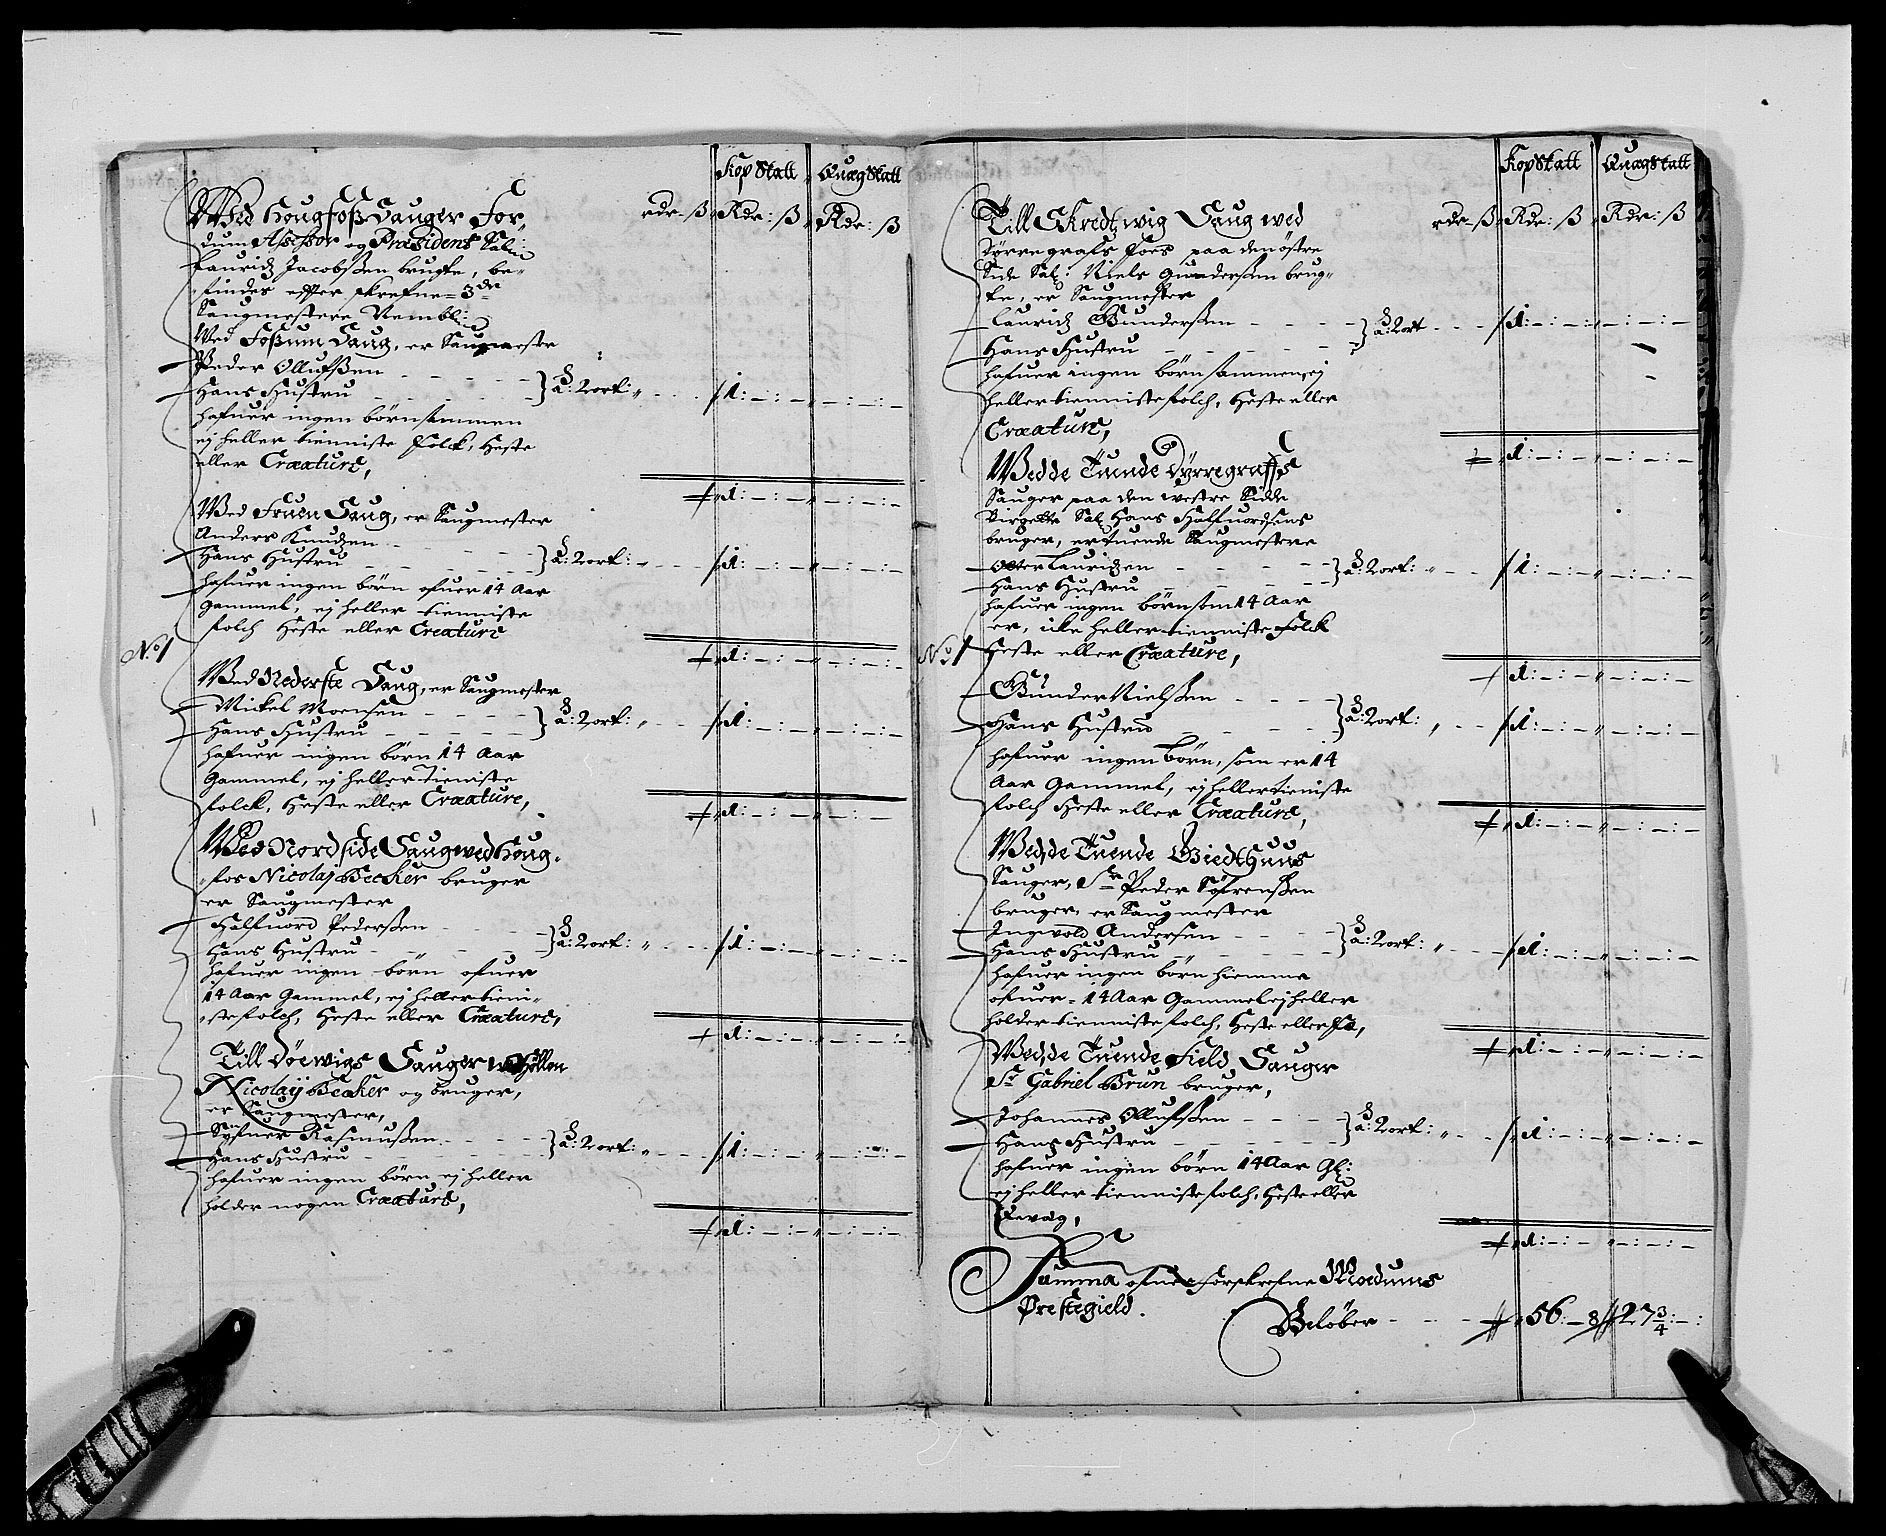 Kop Skatt Quæg Skatt
rdr - ß Rdr: ß Rdr: ß
Wed Hougfoß Sauger For„
dum Assessor og Præsident Sal:
Lauridz Jacobßen brugte, be„
findes effter skrefne 3de
Saugmestere Nembl:
Wed Foßum Saug, er Saugmester
Peder Ollufßen - - - -
Hans Hustru - - - - } a: 2 ort: „ - - - 1: - : -
hafuer ingen börn sammen
ej heller tienniste Folck, Heste
eller Creature,
1: - : -
Wed Fruen Saug, er Saugmester
Anders Knudzen - - - -
Hans Hustru - - - - } a: 2 ort: - - - 1: - : -
hafuer ingen börn ofuer 14 Aar
gammel, ej heller tienniste
folch Heste eller Creature
No 1
1: - : -
Wed Nederste Saug, er Saugmester
Mickel Moensen - - - -
Hans Hustru - - - - } a: 2 ort: „ - - - 1: - : -
hafuer ingen börn 14 Aar
Gammel, ej heller Tieniste
folck, Heste eller Creature,
1: - : -
Wed Nordside Saug wed Houg„
fos Nicolaj Becker bruger
er Saugmester
Halfuord Pederßen - - -
Hans Hustru - - - - } a: 2 ort: „ - - - 1: - : -
hafuer ingen börn ofuer
14 Aar Gammel, ej heller tieni„
ste folch, Heste eller Creature,
1: - : -
Till Döewigs Sauger
Nicolaij Becker og bruger,
er Saugmester,
Rasmußen - - -
Hans Hustru - - - - } a: 2 ort: „ - - - 1: - : -
hafuer ingen börn ej heller
holder nogen Creature,
1: - : -
Kop Skatt Quæg Skatt
rdr - ß Rdr: ß Rdr: ß
Till Skredtwig Saug wed
Dörregrafs Foes paa den östre
Side Sal: Niels Gundersen brug„
te, er Saugmester
Lauridz Gundersen - - - -
Hans Hustru - - - - } a: 2 ort - - - 1: - : -
hafuer ingen börn sammen, ej
heller tienniste folch, Heste eller
Creature,
1: - : -
Wed de Tuende Dyrregraffs
Sauger paa den westre Sidde
Birgette Sal: Hans Halfuordsens
bruger, er tuende Saugmestere
Lauridzen - - - -
Hans Hustru - - - - } a: 2 ort: „ - - 1: - : -
hafuer ingen börn som 14 Aar
er, icke heller tienniste Folck
No 1 Heste eller Creature,
1: - : -
Gunder Nielßen - - -
Hans Hustru - - - - } a: 2 ort: „ - - 1: - : -
hafuer ingen börn, som er 14
Aar Gammel, ej heller tieniste
folch Heste eller Creature,
1: - : -
Wed de Tuende Giedthuus
Sauger, Sr Peder Söfrenßen
bruger, er Saugmester
Ingwold Andersen - - -
Hans Hustru - - - - } a: 2 ort: „ - - 1: - : -
hafuer ingen börn hiemme
ofuer 14 Aar Gammel ej heller
holder tienniste folch, Heste eller Fæ,
1: - : -
Wed de Tuende Field Sauger
Sr Gabriel Brun bruger,
Johannes Ollufßen - - -
Hans Hustru - - - - } a: 2 ort: „ - - 1: - : -
hafuer ingen börn 14 Aar Gl:
ej heller tienniste folch, Heste eller
Qevæg,
1: - : -
Summa ofuer forskrefne Moedums
Prestegield.
Belöber - - - 56: - 8 27 3/4: - :